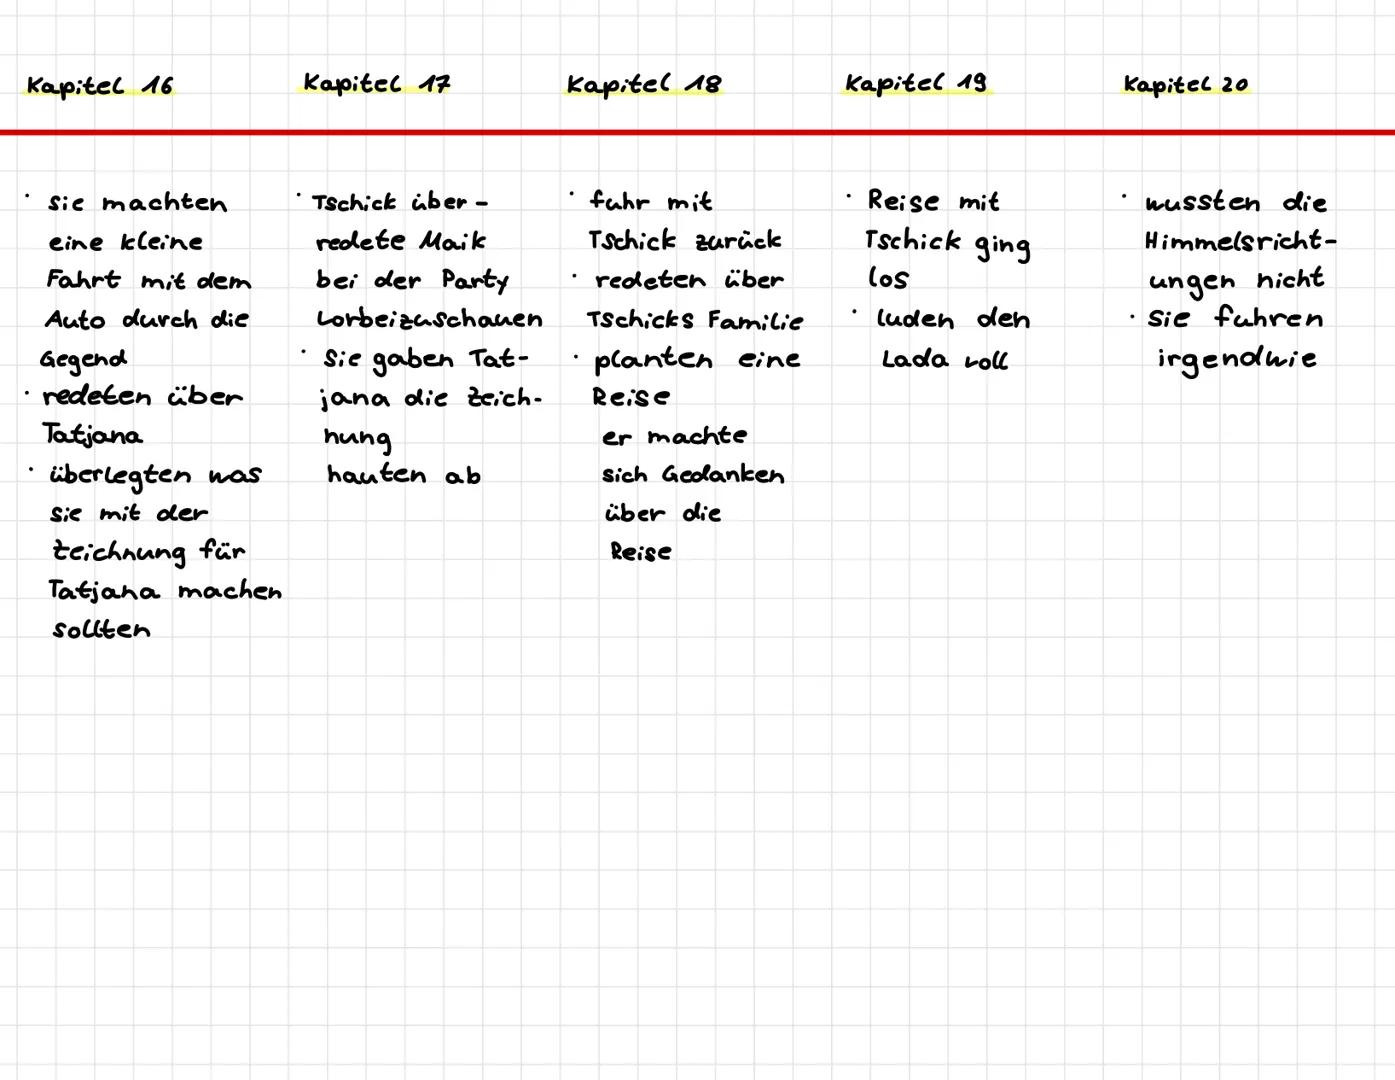 Kapitel 16
· sie machten
eine kleine
Fahrt mit dem
Auto durch die
Gegend
· redeten über
Tatjana
· überlegten was
sie mit der
Zeichnung für
Tatjana machen
sollten
Kapitel 17
· Tschick über-
redete Maik
bei der Party
vorbeizuschauen
· Sie gaben Tat-
jana die Zeich-
nung
hauten ab
Kapitel 18
· fuhr mit
Tschick zurück
· redeten über
Tschicks Familie
· planten eine
Reise
er machte
sich Gedanken
über die
Reise
Kapitel 19
· Reise mit
Tschick ging
los
· luden den
Lada voll
Kapitel 20
· wussten die
Himmelsricht-
ungen nicht
· Sie fuhren
irgendwie